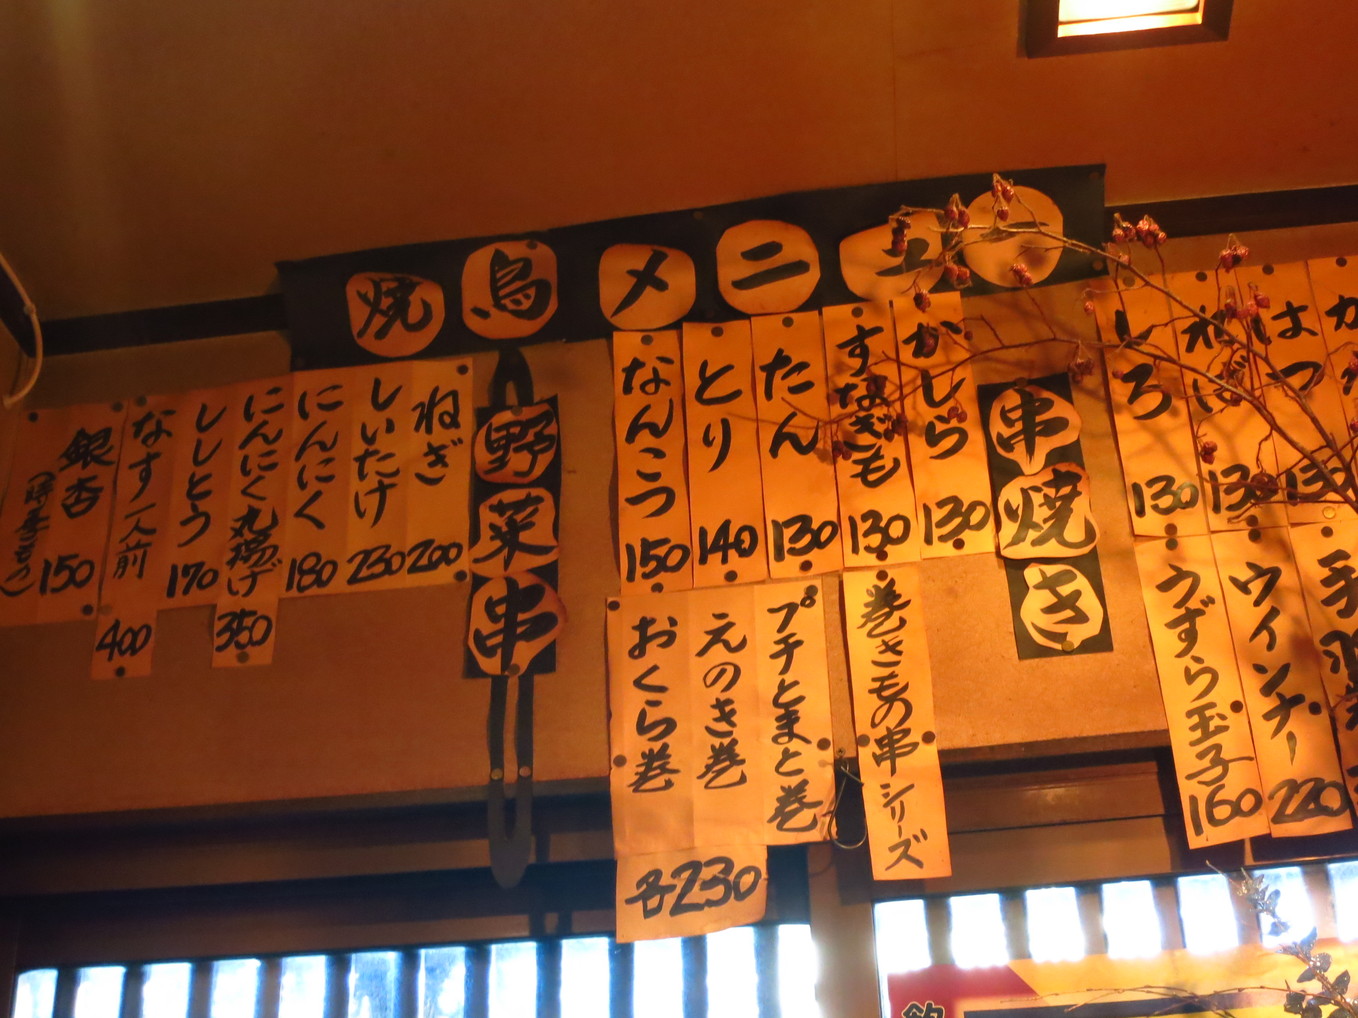 焼鳥メニュー
串焼き
しろ 130
ればー 130
はつ 130
ウインナー 220
うずら玉子 160
かしら 130
すなぎも 130
たん 130
とり 140
なんこつ 150
巻きもの串シリーズ
プチとまと巻
えのき巻
おくら巻
各230
野菜串
ねぎ 200
しいたけ 230
にんにく 180
にんにく丸揚げ 350
ししとう 170
なす一人前 400
銀杏 150